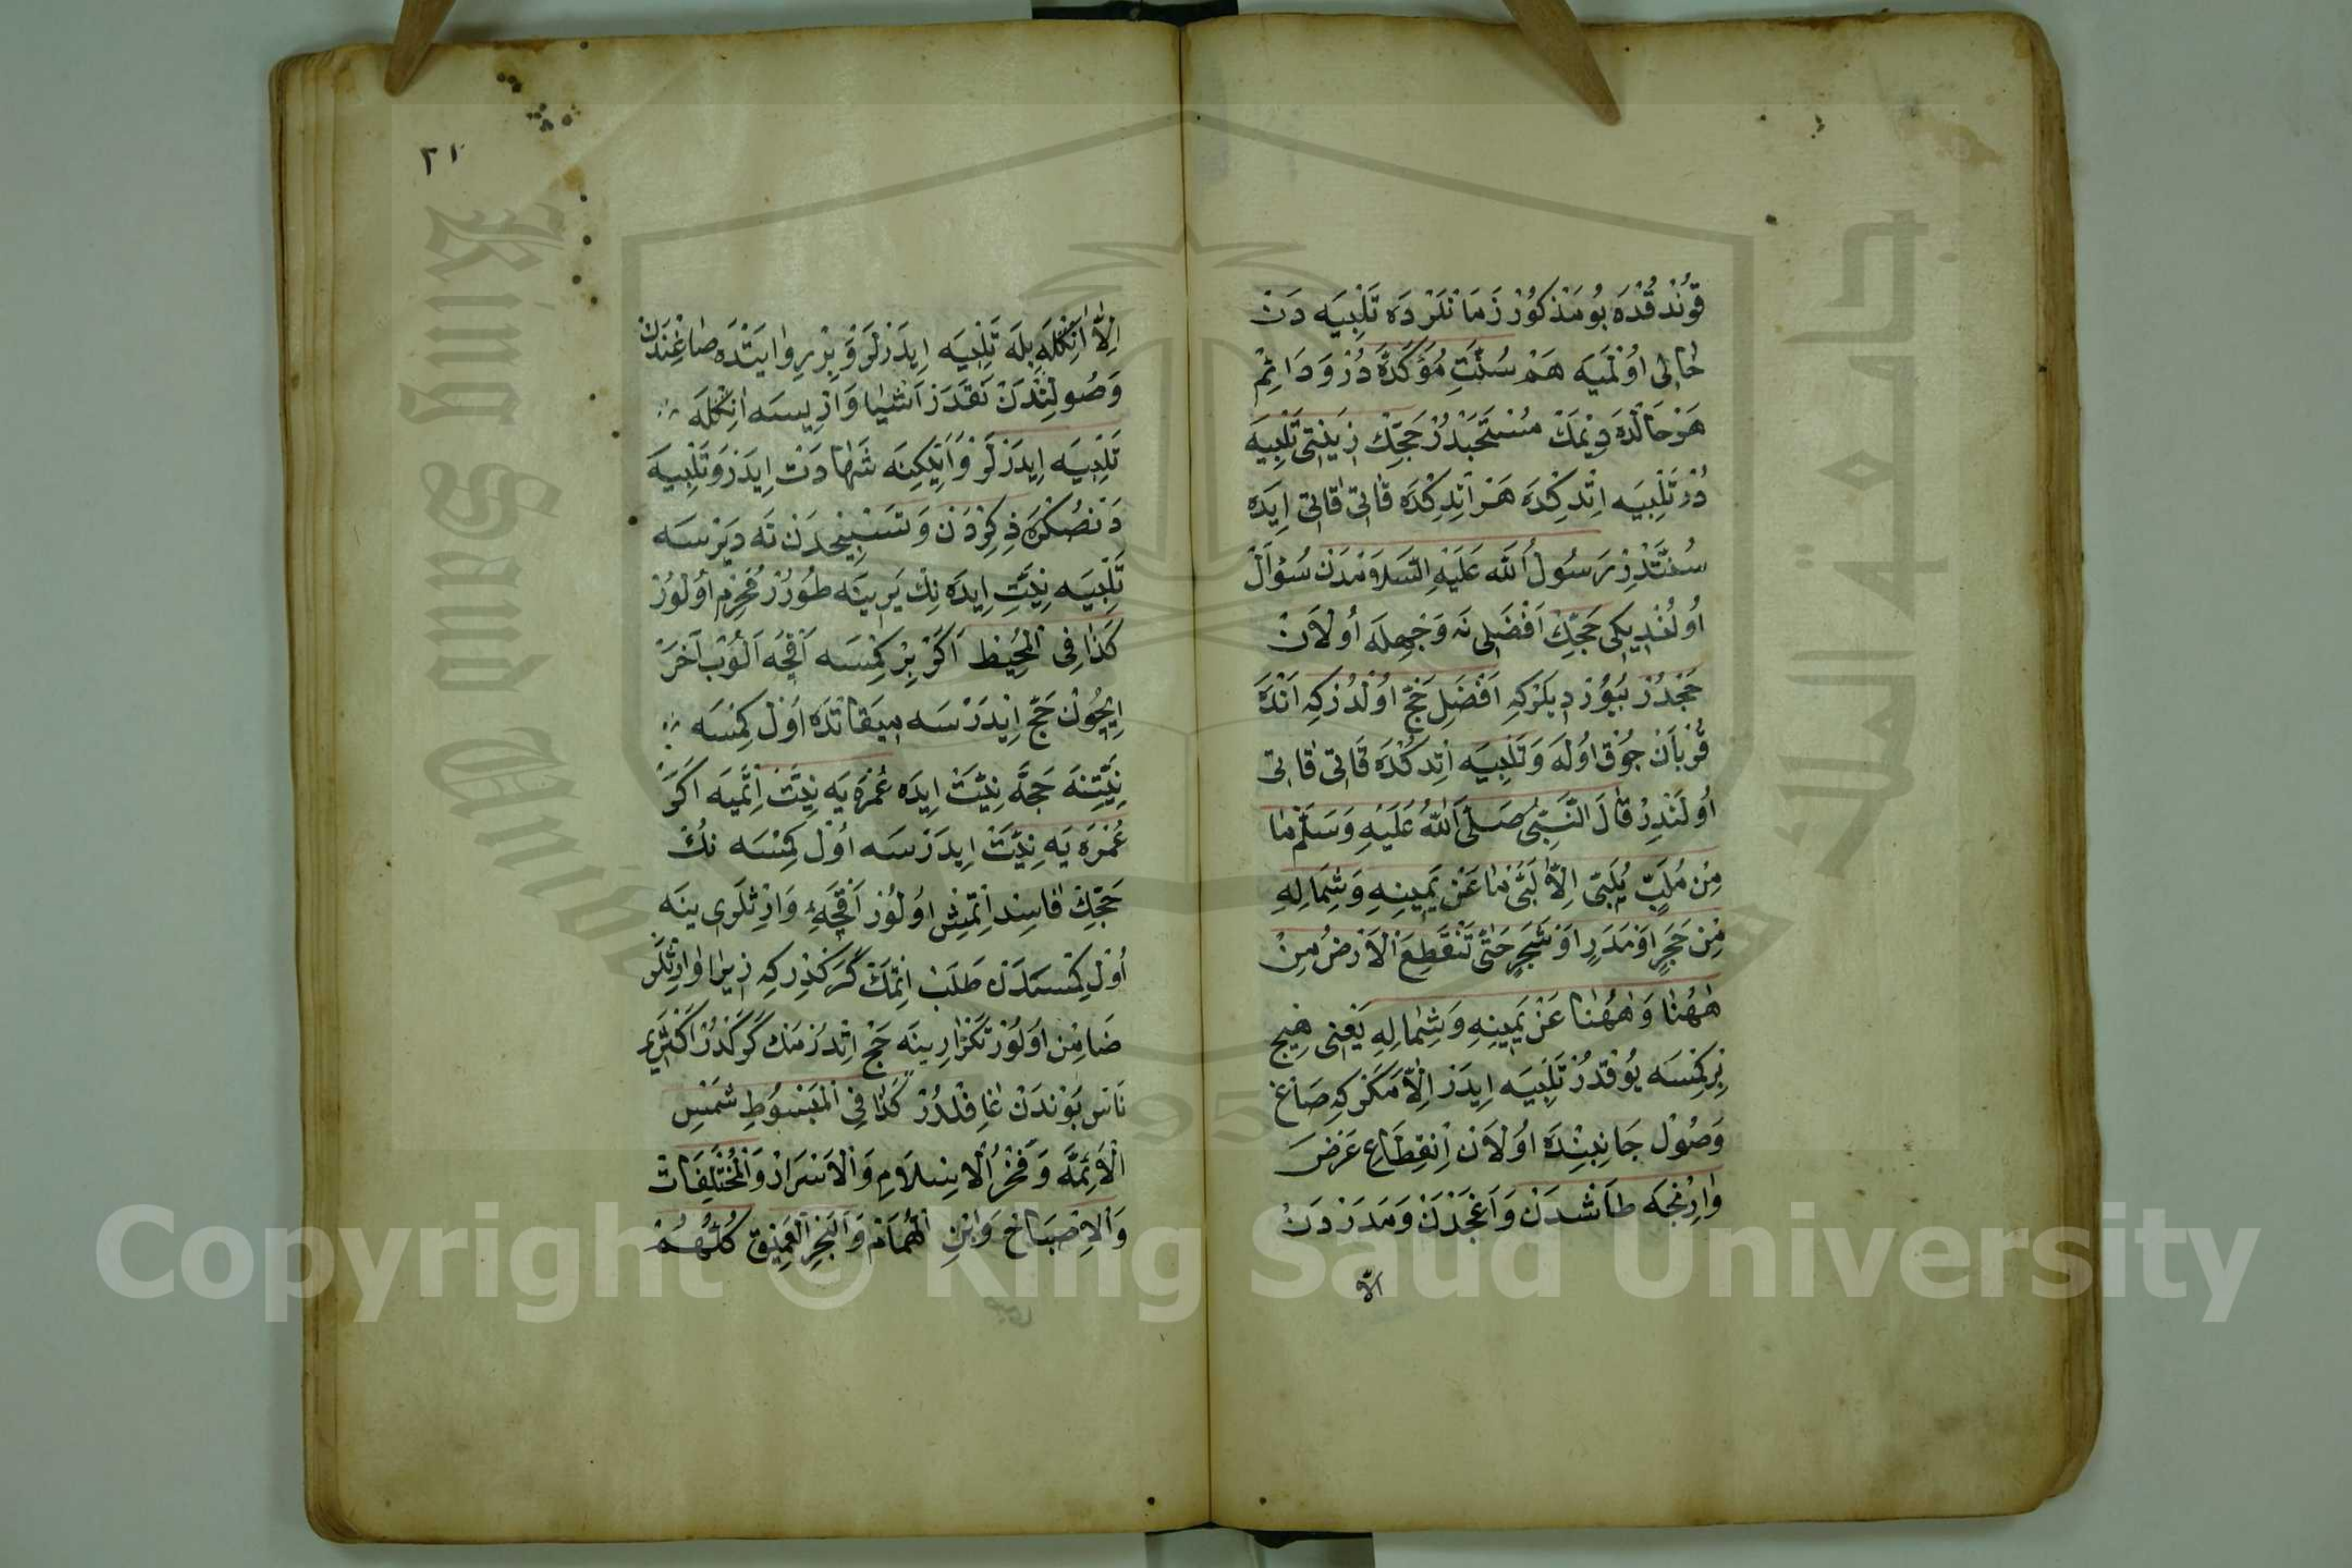 قُونْدقْدَه بُو مَذْكُورْ زَمَانْلَرْدَه تَلْبِيَه دَنْ
خَالِى اُوْلْمَيَه هَمْ سُنَّتِ مُؤَكَّدَه دُرْ وَدَائِمْ
هَرْحَالْدَه دِيْمَكْ مُسْتَحَبْدُرْ حَجِّكْ زِينَتِى تَلْبِيَه
دُرْ تَلْبِيَه اِتْدِكْدَه هَرْ اِتْدِكْدَه قَاتِى قَاتِى اِيدَه
سُنَّتْدِرْ رَسُولُ اللّٰه عَلَيْهِ السَّلَامْدَنْ سُؤَالْ
اُولُنْدِيكِى حَجِّكْ اَفْضَلِى نَه وَجْهِلَه اُولَانْ
حَجْدُرْ بُيُوْرْدِيلَرْكِه اَفْضَلِ حَجّ اُوْلْدُرْكِه اَنْدَه
قُرْبَانْ چُوْق اُولَه وَتَلْبِيَه اِتْدِكْدَه قَاتِى قَاتِى
اُولَنْدِرْ قَالَ النَّبِىُّ صَلَّى اللّٰهُ عَلَيْهِ وَسَلَّمْ مَا
مِنْ مُلَبٍّ يُلَبِّى اِلَّا لَبَّى مَا عَنْ يَمِينِهِ وَشِمَالِهِ
مِنْ حَجَرٍ اَوْ مَدَرٍ اَوْ شَجَرٍ حَتَّى تَنْقَطِعَ الْاَرْضُ مِنْ
هٰهُنَا وَهٰهُنَا عَنْ يَمِينِهِ وَشِمَالِهِ يَعْنِى هِيچ
بِرْكِمْسَه يُوْقدُرْ تَلْبِيَه اِيدَرْ اِلَّا مَكَرْكِه صَاغ
وَصُولْ جَانِبِنْدَه اُولَانْ اِنْقِطَاعِ عَرْضَ
وَارِنْجَه طَاشْدَنْ وَاَغَجْدَنْ وَمَدَرْدَنْ
اِلَّا
٢١
اِلَّا اَنِكْلَه بِلَه تَلْبِيَه اِيدَرْلَرْ وَبِرْ رِوَايَتْدَه صَاغِنْدَنْ
وَصُولِنْدَنْ نَقَدَرْ اَشْيَا وَارِيسَه اَنِكْلَه
تَلْبِيَه اِيدَرْلَرْ وَاَيْلِكِنَه شَهَادَتْ اِيدَرْ وَتَلْبِيَه
دَنْصُكْرَه ذِكِرْدَنْ وَتَسْبِيحْدَنْ نَه دِيَرْسَه
تَلْبِيَه نِيَّتِ اِيدَه نِكْ يَرِينَه طُورُرْ مُحْرِمْ اُولُورْ
كَذَا فِى الْمُحِيطْ اَكَرْ بِرْ كِمْسَه اَقْچَه اَلُوبْ آخَرْ
اِيچُونْ حَجّ اِيْدَرْسَه مِيقَاتْدَه اَوْلْ كِمْسَه
نِيَّتِنَه حَجَّه نِيَّتْ اِيدَه عُمْرَه يَه نِيَّتْ اِتْمَيَه اَكَرْ
عُمْرَه يَه نِيَّتْ اِيدَرْسَه اُوْلْ كِمْسَه نِكْ
حَجِّنْ فَاسِد اِتْمِشْ اُولُورْ اَقْچَه‌ءِ وَارِثْلَرِى يِنَه
اُوْلْ كِمْسَه‌دَنْ طَلَبْ اِتْمَكْ كَرَكْدِرْكِه زِيرَا وَارِثْلَرْ
ضَامِنْ اُولُورْ تَكْرَارِينَه حَجّ اِتْدُرْمَكْ كَرَكْدُرْ اَكْثَرِى
نَاسْ بُوْنْدَنْ غَافِلْدُرْ كَذَا فِى الْمَبْسُوطِ شَمْسِ
الْاَئِمَّه وَفَخْرُ الْاِسْلَامِ وَالْاَسْرَارْ وَالْمُخْتَلِفَاتْ
وَالْاِصْبَاحْ وَابْنِ الْهُمَامْ وَالْبَحْرِ الْعَمِيْقْ كُلُّهُمْ
Copyright © King Saud University